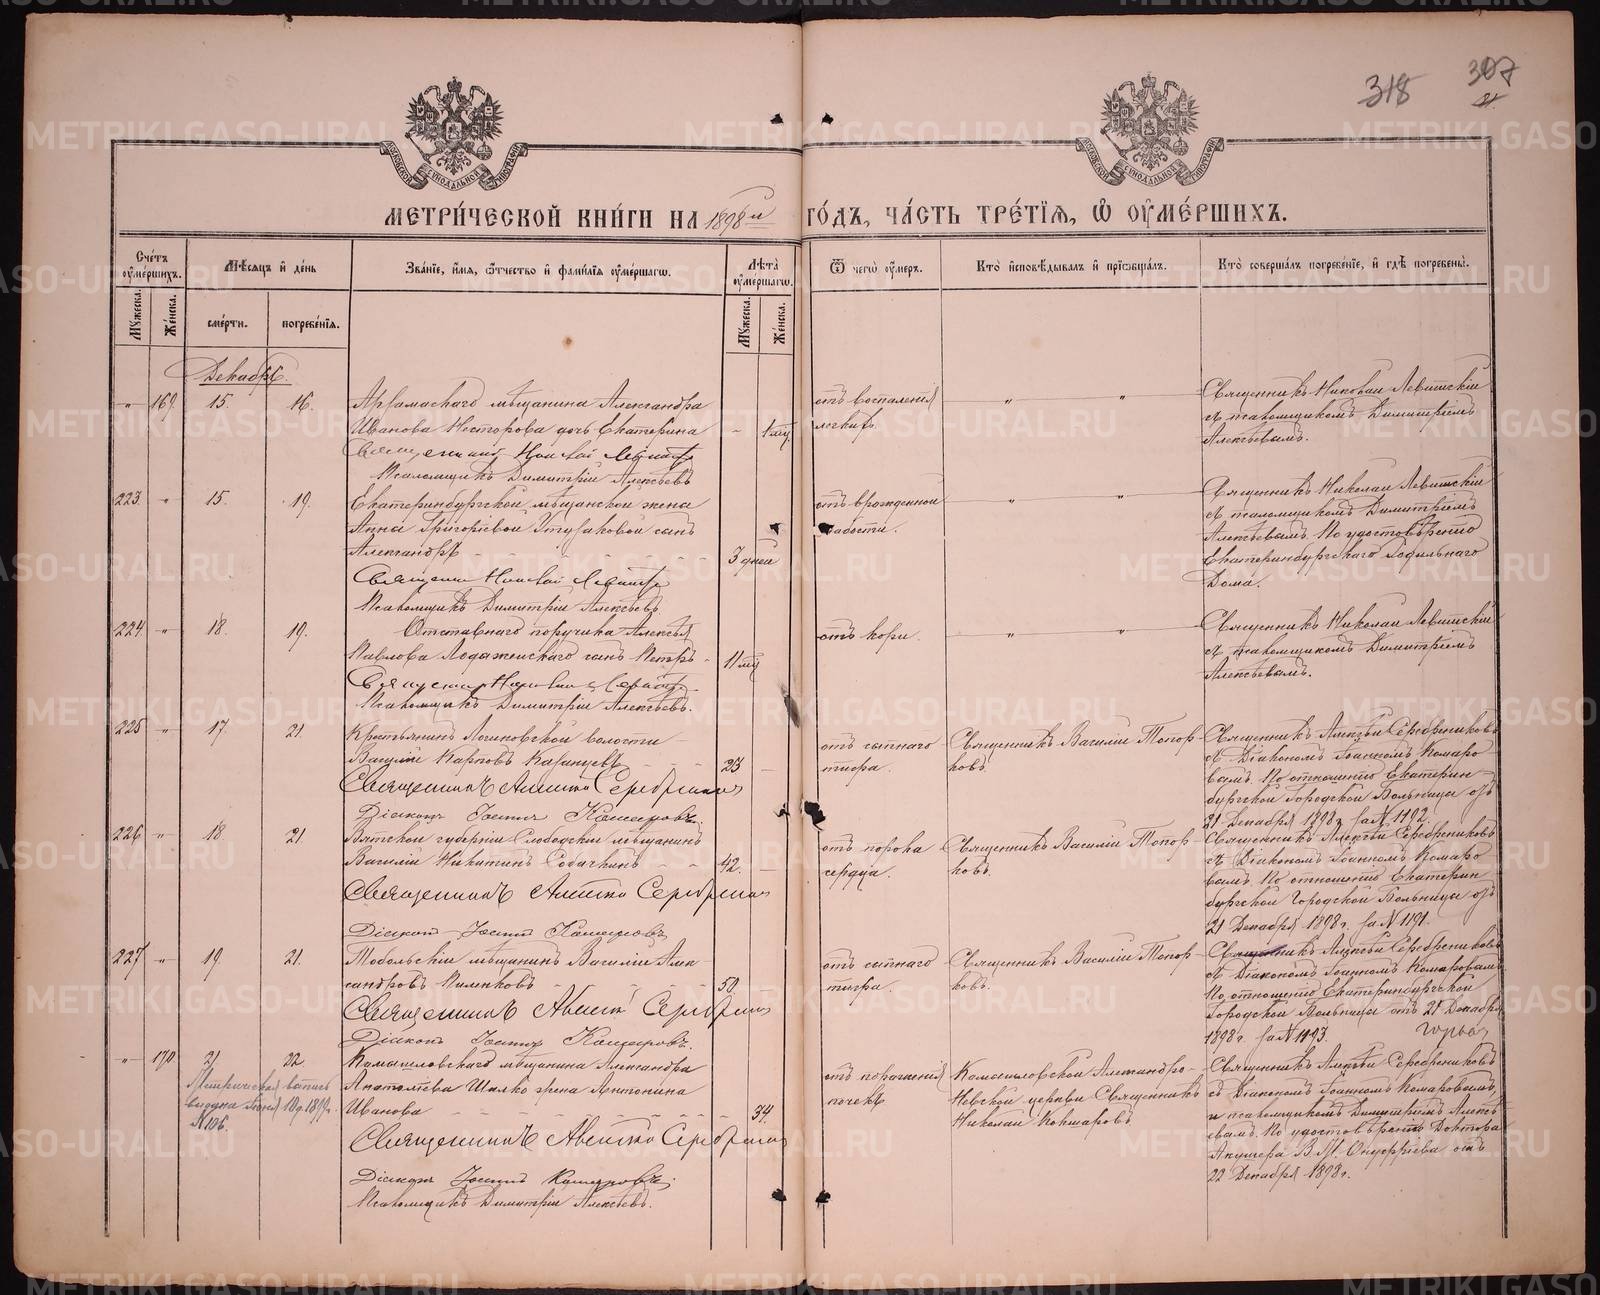 318
307
МЕТРИ́ЧЕСКОЙ КНИ́ГИ НА 1898й ГО́ДЪ, ЧА́СТЬ ТРЕ́ТІѦ, Ѿ ОУ҆МЕ́РШИХЪ.
Сче́тъ оу҆ме́ршихъ.
Мѣ́сяцъ и҆ де́нь
Зва́нїе, и҆́мѧ, ѻ҆́тчество и҆ фамі́лїѧ оу҆ме́ршагѡ.
Лѣ́та оу҆ме́ршагѡ.
Ѿ чегѡ̀ оу҆́меръ.
Кто̀ и҆сповѣ́дывалъ и҆ прїѡбща́лъ.
Кто̀ соверша́лъ погребе́нїе, и҆ гдѣ̀ погребены̀.
Мꙋ́жеска.
Же́нска.
сме́рти.
погребе́нїѧ.
Мꙋ́жеска.
Же́нска.
Декабрь.
" 169. 15. 16.
Арзамаскаго мѣщанина Александра
Иванова Несторова дочь Екатерина
- 1 мѣ.
Священникъ Николай Левитскій
Псаломщикъ Димитрій Алексѣевъ
отъ воспаленія
легкихъ.
" "
Священникъ Николай Левитскій
съ псаломщикомъ Димитріемъ
Алексѣевымъ.
223 " 15. 19.
Екатеринбургской мѣщанской жены
Анны Григорьевой сынъ
Александръ
3 дней
Священникъ Николай Левитскій
Псаломщикъ Димитрій Алексѣевъ
отъ врожденной
слабости.
" "
Священникъ Николай Левитскій
съ псаломщикомъ Димитріемъ
Алексѣевымъ. По удостовѣренію
Екатеринбургскаго Родильнаго
Дома.
224. " 18. 19.
Отставнаго поручика Алексѣя
Павлова сынъ Петръ
11 мѣ
Священникъ Николай Левитскій
Псаломщикъ Димитрій Алексѣевъ.
отъ кори.
" "
Священникъ Николай Левитскій
съ псаломщикомъ Димитріемъ
Алексѣевымъ.
225 " 17. 21.
Крестьянинъ волости
Василій Карповъ
23 -
Священникъ Алексѣй Серебренниковъ
Діаконъ Іоаннъ Комаровъ.
отъ сыпнаго
тифа.
Священникъ Василій Топор-
ковъ.
Священникъ Алексѣй Серебрениковъ
съ Діакономъ Іоанномъ Комаро
вымъ. По отношенію Екатерин-
бургской Городской Больницы отъ
21 Декабря 1898 г. за № 1192.
226 " 18 21.
Вятской губерніи Слободской мѣщанинъ
Василій Никитинъ Собачкинъ
42. -
Священникъ Алексѣй Серебренниковъ
Діаконъ Іоаннъ Комаровъ
отъ порока
сердца.
Священникъ Василій Топор-
ковъ.
Священникъ Алексѣй Серебрениковъ
съ Діакономъ Іоанномъ Комаро
вымъ. По отношенію Екатерин
бургской Городской Больницы отъ
21 Декабря 1898 г. за № 1191.
227 " 19. 21.
Тобольскій мѣщанинъ Василій Алек-
сандровъ Пиленковъ
50.
Священникъ Алексѣй Серебренниковъ
Діаконъ Іоаннъ Комаровъ.
отъ сыпнаго
тифа.
Священникъ Василій Топор-
ковъ.
Священникъ Алексѣй Серебрениковъ
съ Діакономъ Іоанномъ Комаровымъ
По отношенію Екатеринбургской
Городской Больницы отъ 21 Декабря
1898 г. за № 1193.
" 170 21 22.
Метрическая выпись
выдана Іюня 18 д. 1899 г.
№ 106.
Камышловскаго мѣщанина Александра
Анатольева Шилко жена Антонина
Иванова
34.
Священникъ Алексѣй Серебренниковъ
Діаконъ Іоаннъ Комаровъ.
Псаломщикъ Димитрій Алексѣевъ.
отъ пораженія
почекъ
Камышловской Александро-
Невской церкви Священникъ
Николай Кокшаровъ
Священникъ Алексѣй Серебрениковъ
съ Діакономъ Іоанномъ Комаровымъ,
и псаломщикомъ Димитріемъ Алексѣ
евымъ. По удостовѣренію Доктора
Акушера В. М. Онуфріева отъ
22 Декабря 1898 г.
METRIKI.GASO-URAL.RU